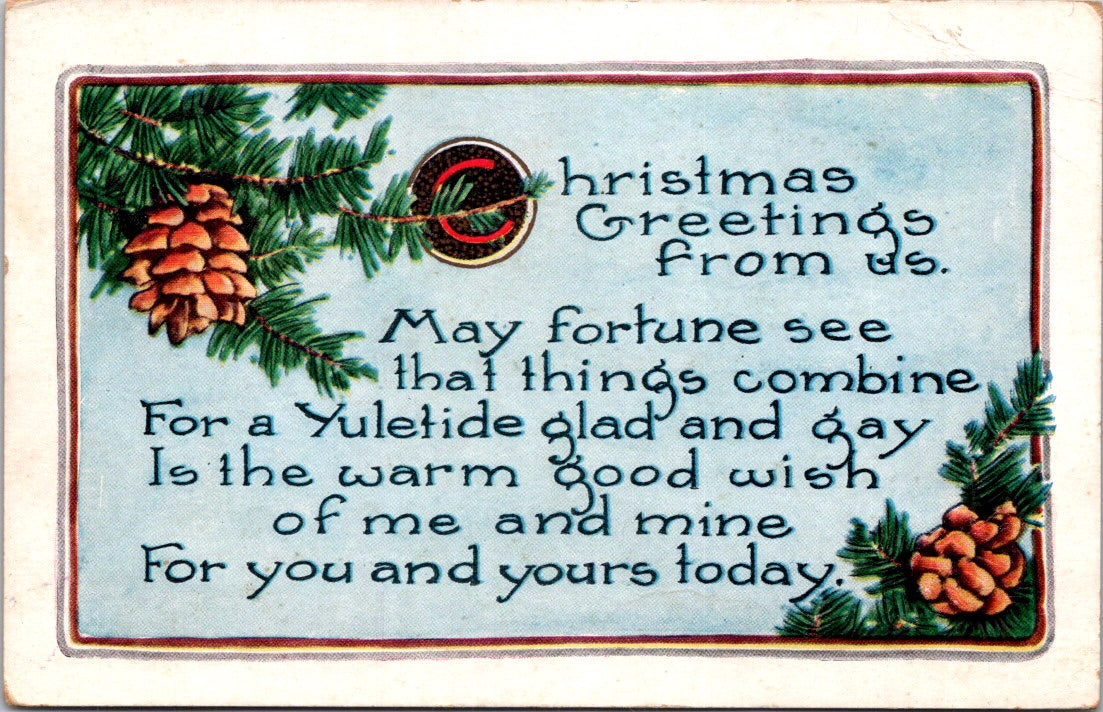 Christmas
Greetings
from us.
May fortune see
that things combine
For a Yuletide glad and gay
Is the warm good wish
of me and mine
For you and yours today.